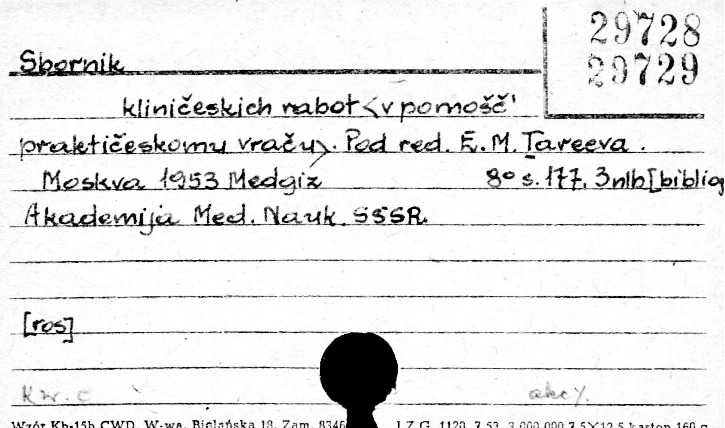 29728
29729
Sbornik
kliničeskich rabot <v pomošč'
praktičeskomu vraču>. Pod red. E.M. Tareeva.
Moskva 1953 Medgiz 8° s. 177, 3nlb [bibliog
Akademija Med. Nauk. SSSR.
[ros]
kw. c akc/.
Wzór Kb-15b CWD, W-wa, Bielańska 18, Zam. 8346 I Z.G. 1120 7.53 3.000.000 7,5×12,5 karton 160 g